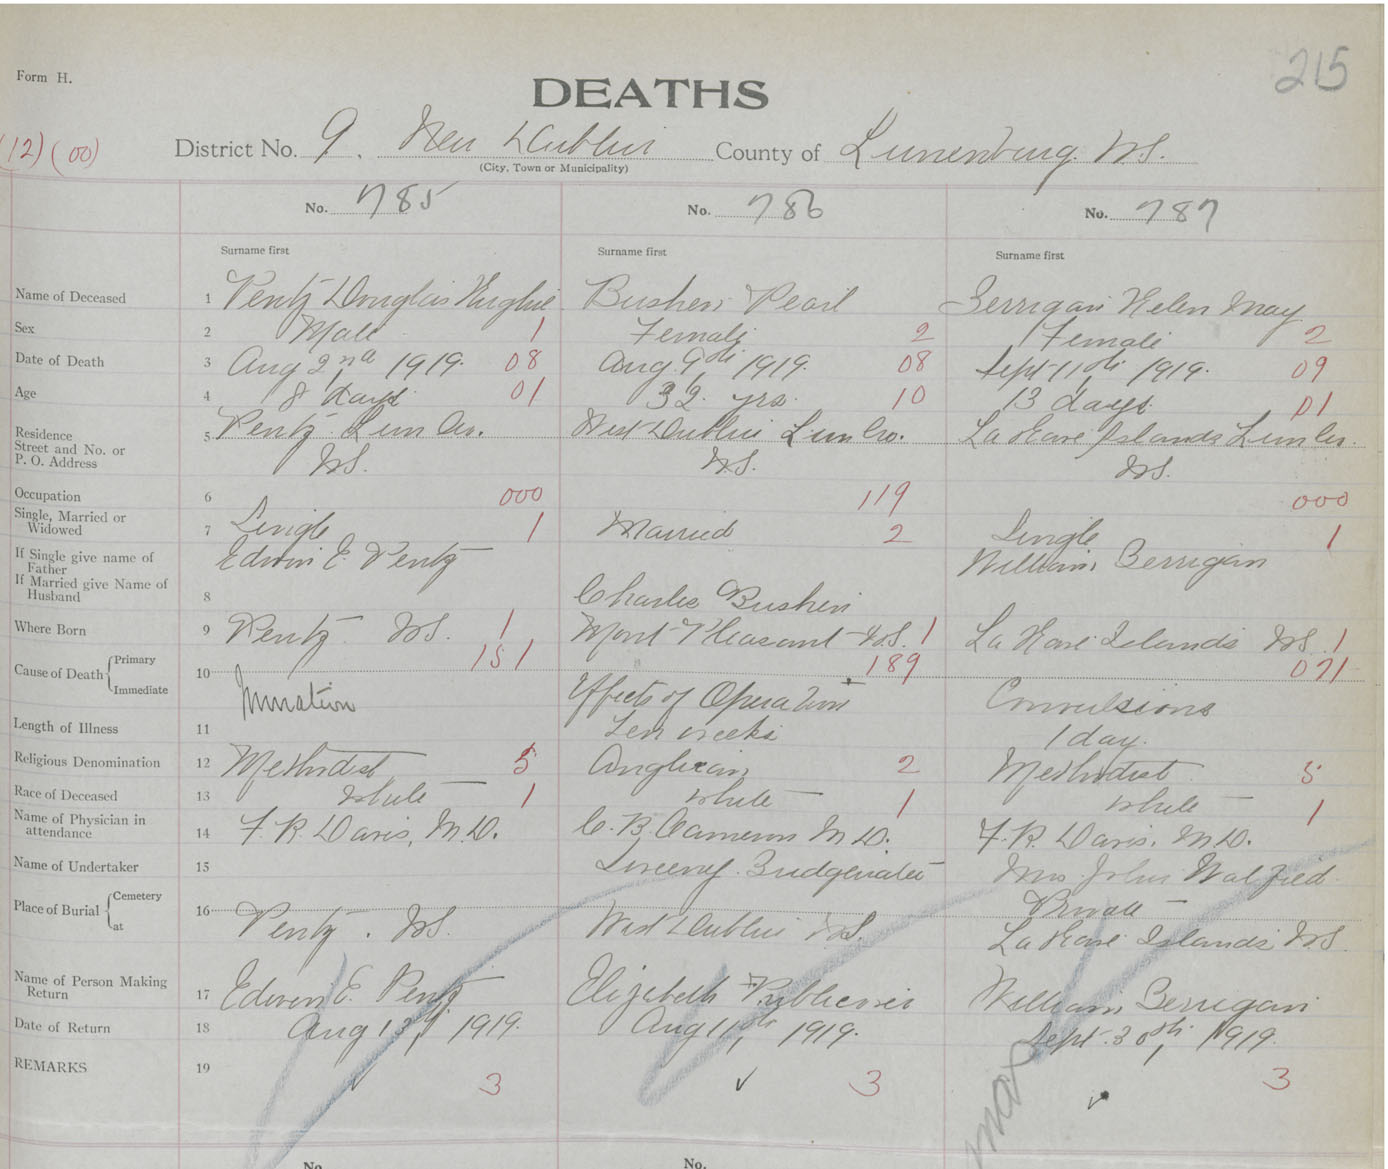 215
Form H.
DEATHS
(12) (00)
District No. 9. New Dublin County of Lunenburg. N.S.
(City, Town or Municipality)
No. 785 No. 786 No. 787
Surname first Surname first Surname first
Name of Deceased 1 Pentz Douglas Hughie Bushen Pearl Berrigan Helen May
Sex 2 Male 1 Female 2 Female 2
Date of Death 3 Aug 2nd, 1919. 08 Aug. 9th, 1919. 08 Sept 11th, 1919. 09
Age 4 8 days 01 32. yrs. 10 13 days. 01
Residence
Street and No. or
P. O. Address
5 Pentz Lun Co. West Dublin Lun Co. La Have Islands Lun Co.
N.S. N.S. N.S.
Occupation 6 000 119 000
Single, Married or
Widowed
7 Single 1 Married 2 Single 1
If Single give name of
Father
Edwin E. Pentz William Berrigan
If Married give Name of
Husband
8 Charles Bushen
Where Born 9 Pentz N.S. 1 Mont Pleasant N.S. 1 La Have Islands N.S. 1
Cause of Death Primary 10 151 189 071
Immediate Effects of Operation Convulsions
Length of Illness 11 Ten weeks 1 day.
Religious Denomination 12 Methodist 5 Anglican 2 Methodist 5
Race of Deceased 13 White 1 White 1 White 1
Name of Physician in
attendance
14 F. R. Davis, M.D. C. B. Cameron M.D. F. R. Davis, M.D.
Name of Undertaker 15 Bridgewater Mrs. John
Place of Burial Cemetery 16 Private
at Pentz. N.S. West Dublin N.S. La Have Islands N.S.
Name of Person Making
Return
17 Edwin E. Pentz Elizabeth Publicover William Berrigan
Date of Return 18 Aug 13th, 1919. Aug 11th, 1919. Sept. 30th, 1919.
REMARKS 19 3 ✓ 3 ✓ 3
No. No.